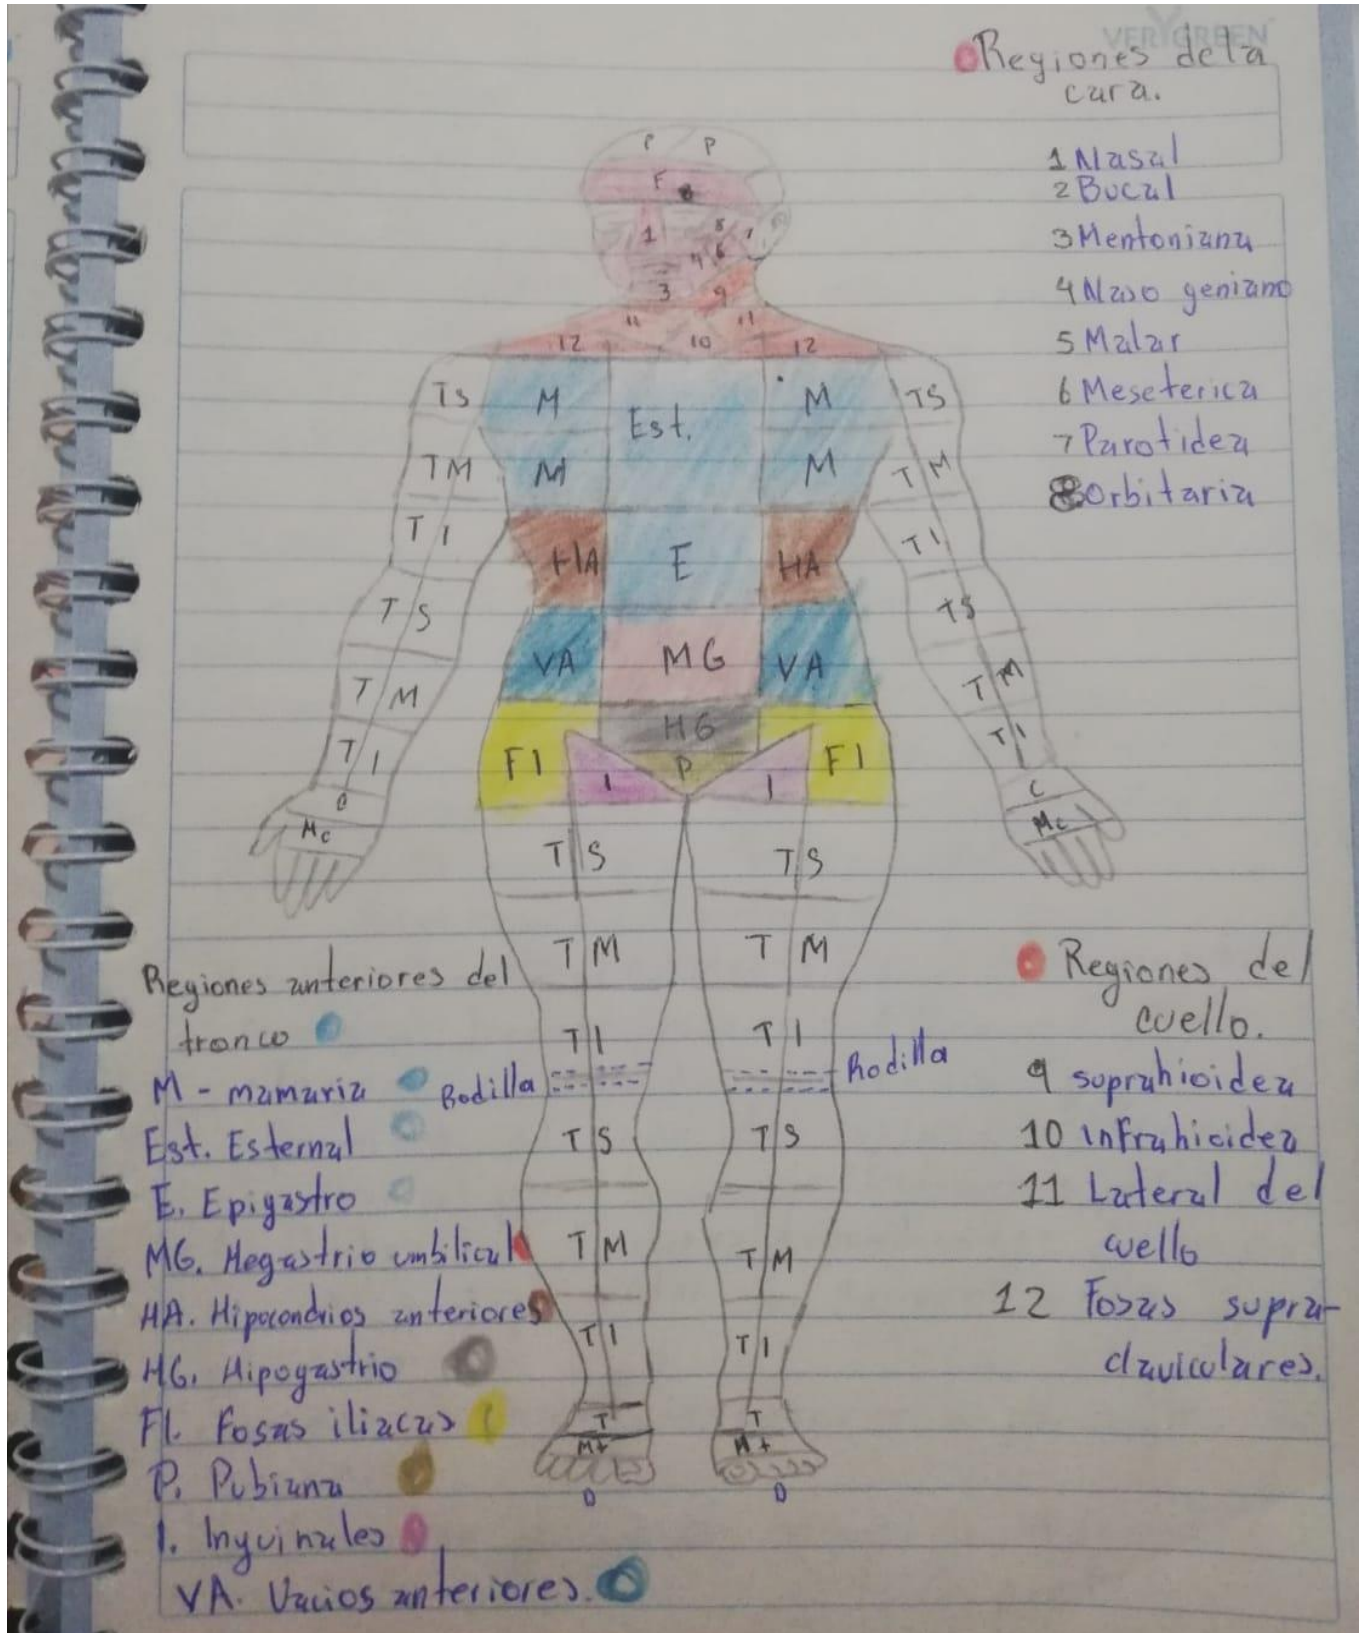 VERYGREEN
Regiones de la
cara.
1 Nasal
2 Bucal
3 Mentoniana
4 Naso geniano
5 Malar
6 Meseterica
7 Parotidea
8 Orbitaria
P P
F
1
5 7
4 6
3 9
11 11
12 10 12
TS M Est. M TS
TM M M TM
TI HA E HA TI
TS TS
VA MG VA
TM TM
HG
TI FI I P I FI TI
C C
Mc Mc
TS TS
TM TM
TI TI
Rodilla Rodilla
TS TS
TM TM
TI TI
T T
Mt Mt
D D
Regiones anteriores del
tronco
M - mamaria
Est. Esternal
E. Epigastro
MG. Megastrio umbilical
HA. Hipocondrios anteriores
HG. Hipogastrio
FI. Fosas iliacas
P. Pubiana
I. Inguinales
VA. Vacios anteriores.
Regiones del
cuello.
9 suprahioidea
10 Infrahioidea
11 Lateral del
cuello
12 Fosas supra-
claviculares.